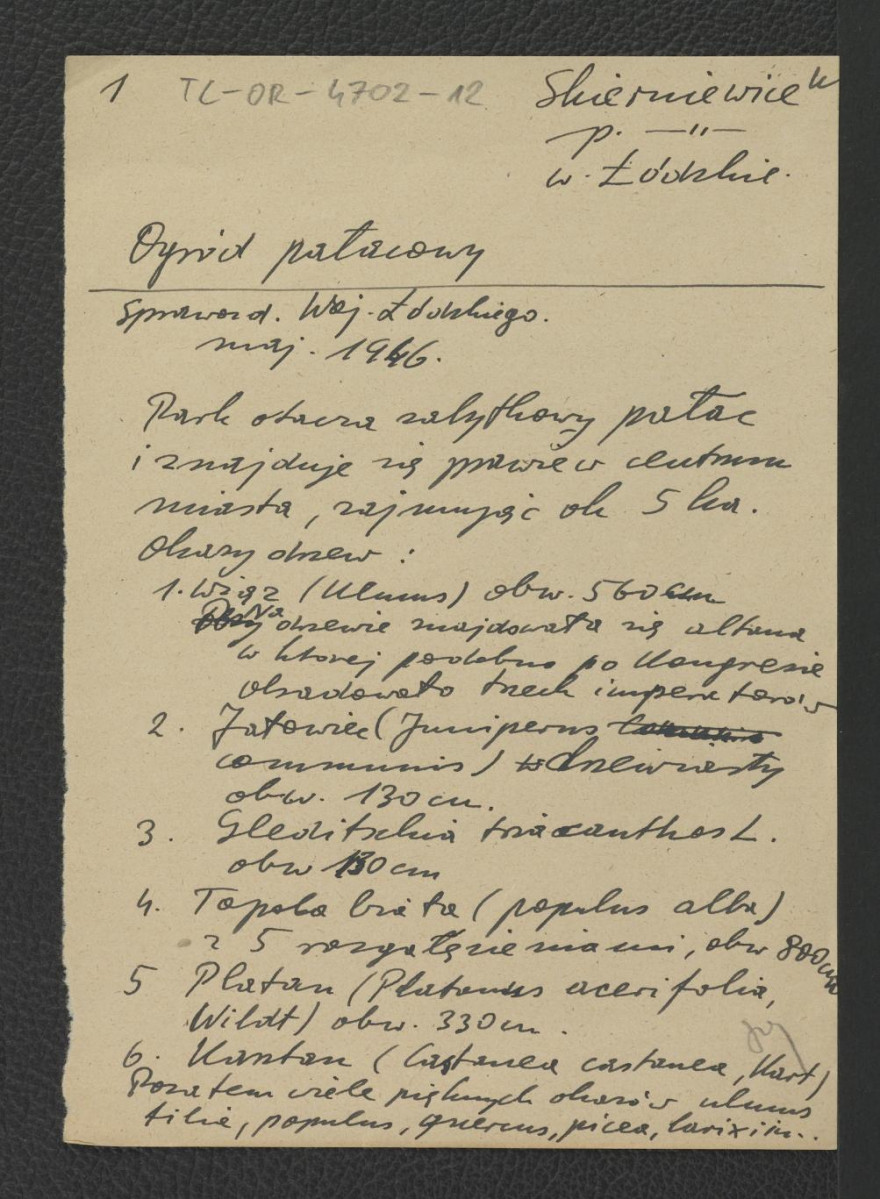 1 TL-OR-4702-12 Skierniewice
p. —"—
w. Łódzkie.
Ogród pałacowy
Sprawozd. Woj. Łódzkiego.
maj. 1946.
Park otacza zabytkowy pałac
i znajduje się prawie w centrum
miasta, zajmując ok 5 ha.
Okazy drzew:
1. Wiąz (Ulmus) obw. 560 cm
Na drzewie znajdowała się altana
w ktorej podobno po Kongresie
obradowało trzech imperatorów
2. Jałowiec (Juniperus
communis) drzewiasty
obw. 130 cm.
3. Gleditschia triacanthos L.
obw 130 cm
4. Topola biała (populus alba)
z 5 rozgałęzieniami, obw 800 cm
5 Platan (Platanus acerifolia,
Wildt) obw. 330 cm.
6. Kasztan (Castanea castanea, Kart)
Pozatem wiele pięknych okazów ulmus
tilia, populus, quercus, picea, larix i in..